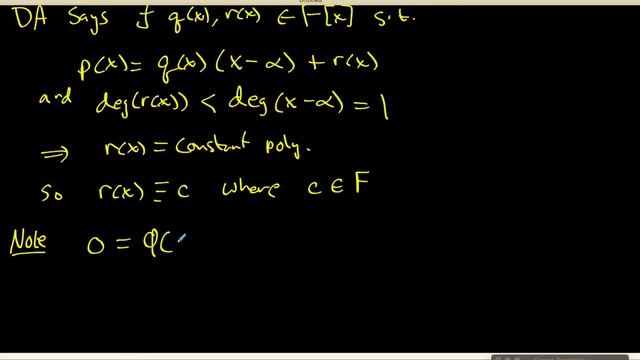 DA Says ∃ q(x), r(x) ∈ F[x] s.t.
p(x) = q(x) (x-α) + r(x)
and deg(r(x)) < deg(x-α) = 1
⟹ r(x) = constant poly.
so r(x) ≡ c where c ∈ F
Note 0 = p(